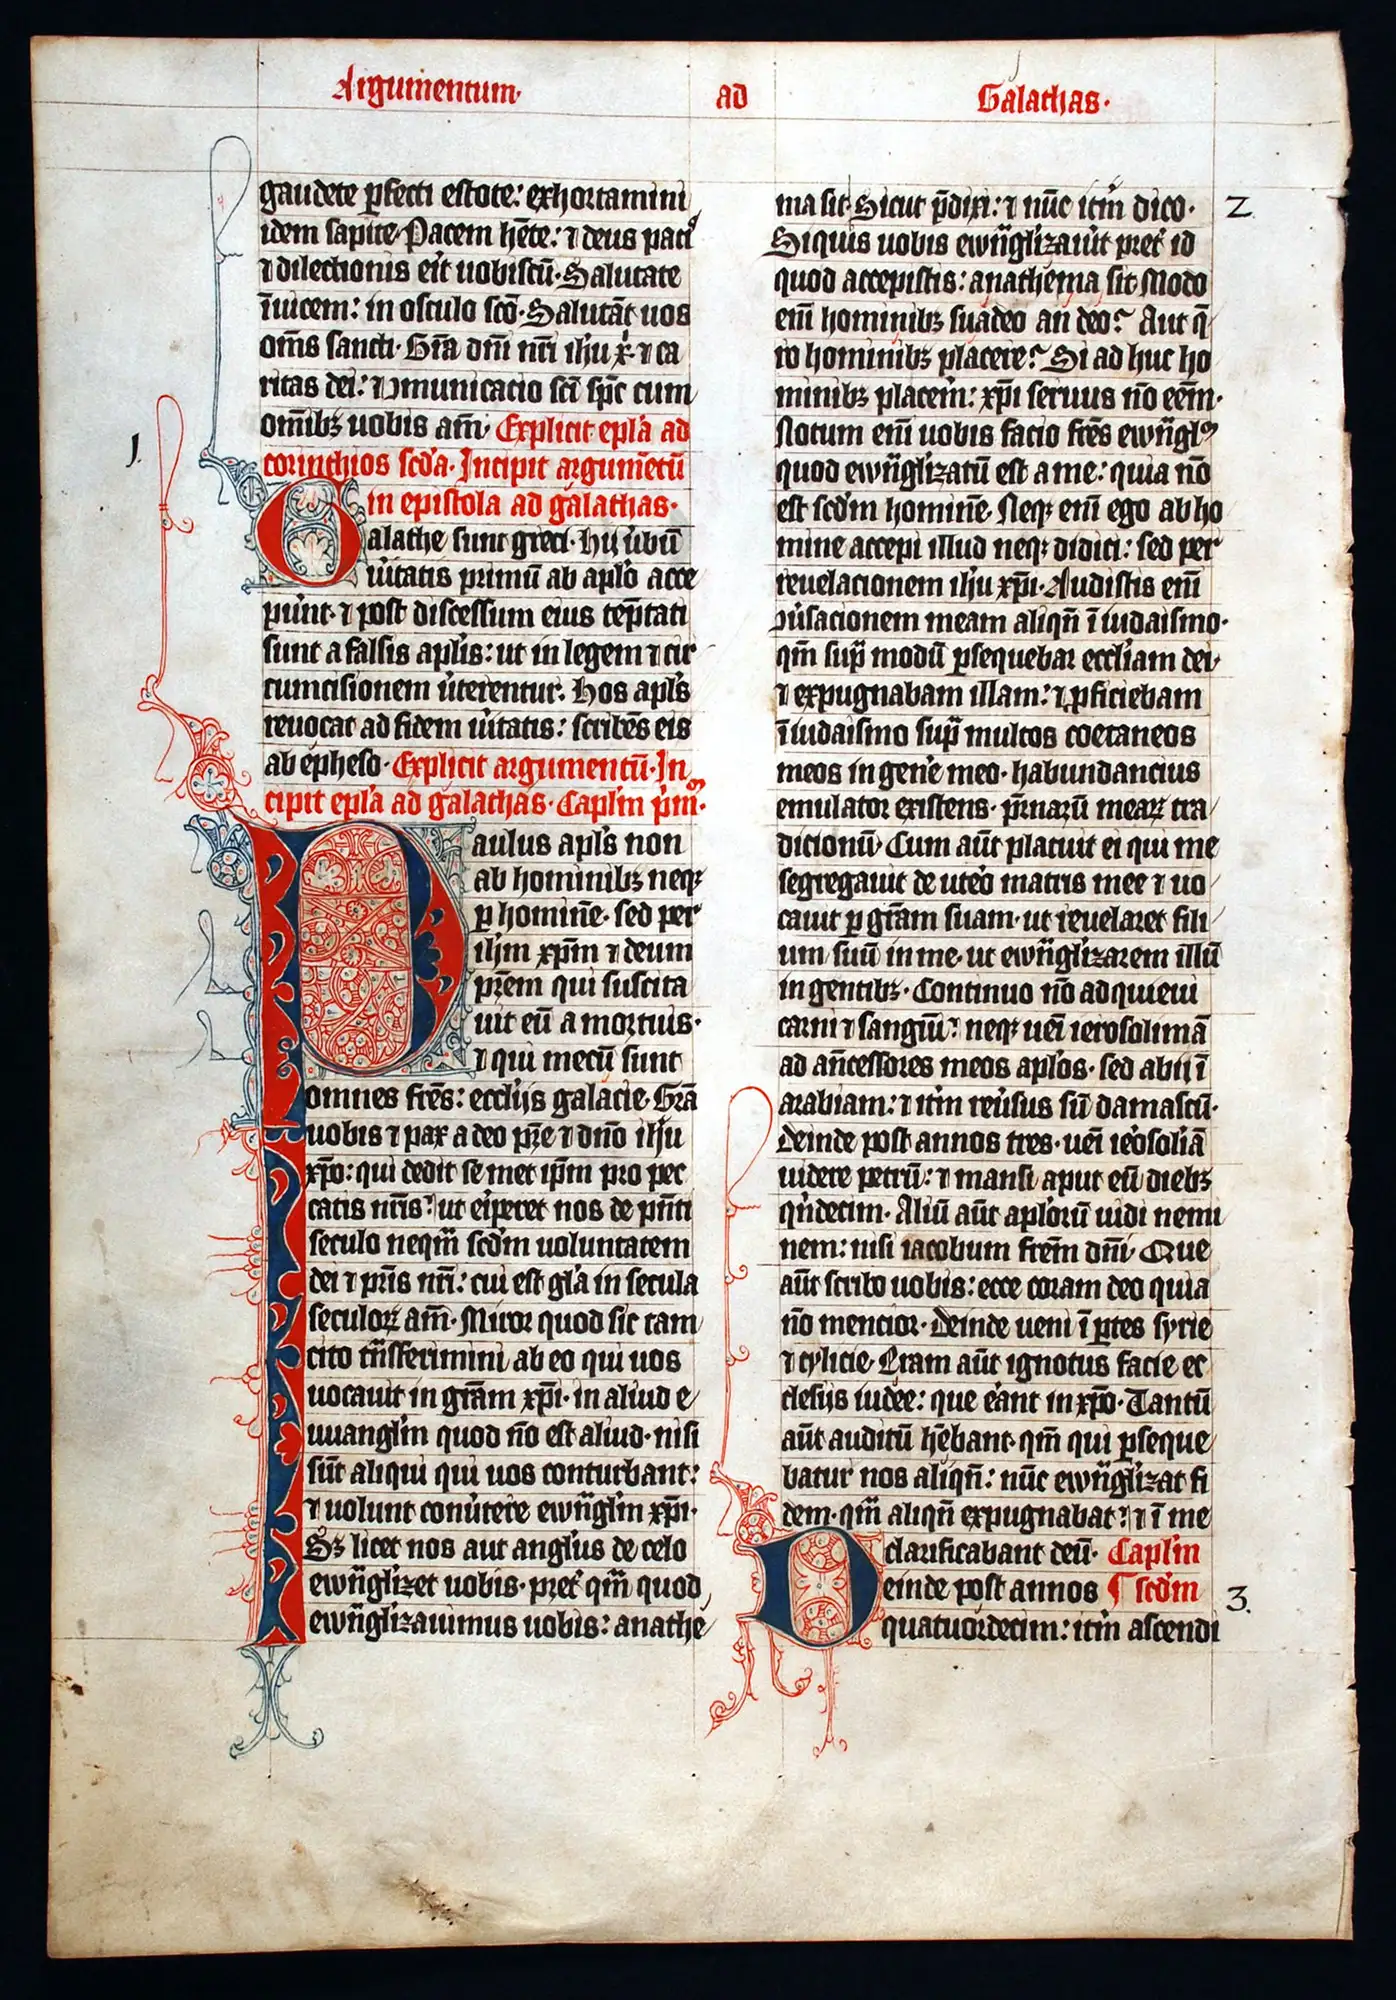 Argumentum· ad Galathas·
gaudete ꝑfecti estote: exhortamini
idem sapite· Pacem hēte: ⁊ deus paciꝰ
⁊ dilectionis erit uobiscū· Salutate
īuicem: in osculo scō· Salutāt uos
om̄s sancti· Gr̄a dn̄i nr̄i ihu xp̄i ⁊ ca
ritas dei: ⁊ ꝯmunicacio sc̄i sp̄c cum
om̄ibꝫ uobis am̄· Explicit ep̄la ad
corinthios scd̄a· Incipit argumētū
in epistola ad galathas·
Galathe sunt greci· Hij ūbū
ūitatis primū ab ap̄lo acce
perūt· ⁊ post discessum eius tēptati
sunt a falsis ap̄lis: ut in legem ⁊ cir
cumcisionem ūterentur· Hos ap̄ls
reuocat ad fidem ūitatis: scribēs eis
ab epheso· Explicit argumentū· In
cipit ep̄la ad galathas· Cap̄lm p̄mꝰ·
Paulus ap̄ls non
ab hominibꝫ neqꝫ
ꝑ hominē· sed per
ihm xp̄m ⁊ deum
pr̄em qui suscita
uit eū a mortuis·
⁊ qui mecū sunt
omnes fr̄es: eccl̄ijs galacie· Gr̄a
uobis ⁊ pax a deo pr̄e ⁊ dn̄o ihu
xp̄o: qui dedit semet ip̄m pro pec
catis nr̄is: ut eriperet nos de pn̄ti
seculo neqm̄ scd̄m uoluntatem
dei ⁊ pr̄is nr̄i: cui est gl̄a in secula
seculoꝝ am̄· Miror quod sic tam
cito tn̄sferimini ab eo qui uos
uocauit in gr̄am xp̄i· in aliud e
uuanglm̄ quod nō est aliud· nisi
sūt aliqui qui uos conturbant:
⁊ uolunt conūtere ewn̄glm̄ xp̄i·
Sꝫ licet nos aut anglus de celo
ewn̄glizet uobis· pret̄ qm̄ quod
ewn̄glizauimus uobis: anathe
ma sit· Sicut p̄dixi: ⁊ nūc itm̄ dico·
Siquis uobis ewn̄glizaūit pret̄ id
quod accepistis: anathema sit· Modo
eni̅ hominibꝫ suadeo an deo? Aut q̄
ro hominibꝫ placere? Si ad huc ho
minibꝫ placerem: xp̄i seruus nō eēm·
Notum eni̅ uobis facio fr̄es ewn̄glꝫ
quod ewn̄glizatū est a me: quia nō
est scd̄m hominē· Neqꝫ eni̅ ego ab ho
mine accepi illud neqꝫ didici: sed per
reuelacionem ihu xp̄i· Audistis eni̅
ꝯūsacionem meam aliqn̄ ī iudaismo·
qm̄ sup̄ modū ꝑsequebar eccl̄iam dei·
⁊ expugnabam illam: ⁊ ꝓficiebam
ī iudaismo sup̄ multos coetaneos
meos in gen̄e meo· habundancius
emulator existens· pr̄naꝝ meaꝝ tra
dicionū· Cum aūt placuit ei qui me
segregauit de utero matris mee ⁊ uo
cauit ꝑ gr̄am suam· ut reuelaret fili
um suū in me· ut ewn̄glizarem illū
in gentibꝫ· Continuo nō adquieui
carni ⁊ sangūi: neqꝫ ueni ierosolimā
ad an̄cessores meos ap̄los· sed abij ī
arabiam: ⁊ itm̄ reūsus sū damascū·
Deinde post annos tres· ueni ierosolīā
uidere petrū: ⁊ mansi aput eū diebꝫ
qn̄decim· Aliū aūt aplōrū uidi nemi
nem: nisi iacobum fr̄em dn̄i· Que
aūt scribo uobis: ecce coram deo quia
nō mencior· Deinde ueni ī ꝑtes syrie
⁊ cylicie· Eram aūt ignotus facie ec
clesijs iudee: que erant in xp̄o· Tantū
aūt auditū hēbant· qm̄ qui ꝑseque
batur nos aliqn̄: nūc ewn̄glizat fi
dem· qm̄ aliqn̄ expugnabat: ⁊ ī me
clarificabant deū· Cap̄lm
Deinde post annos ¶ scd̄m
quatuordecim: itm̄ ascendi
1.
2.
3.